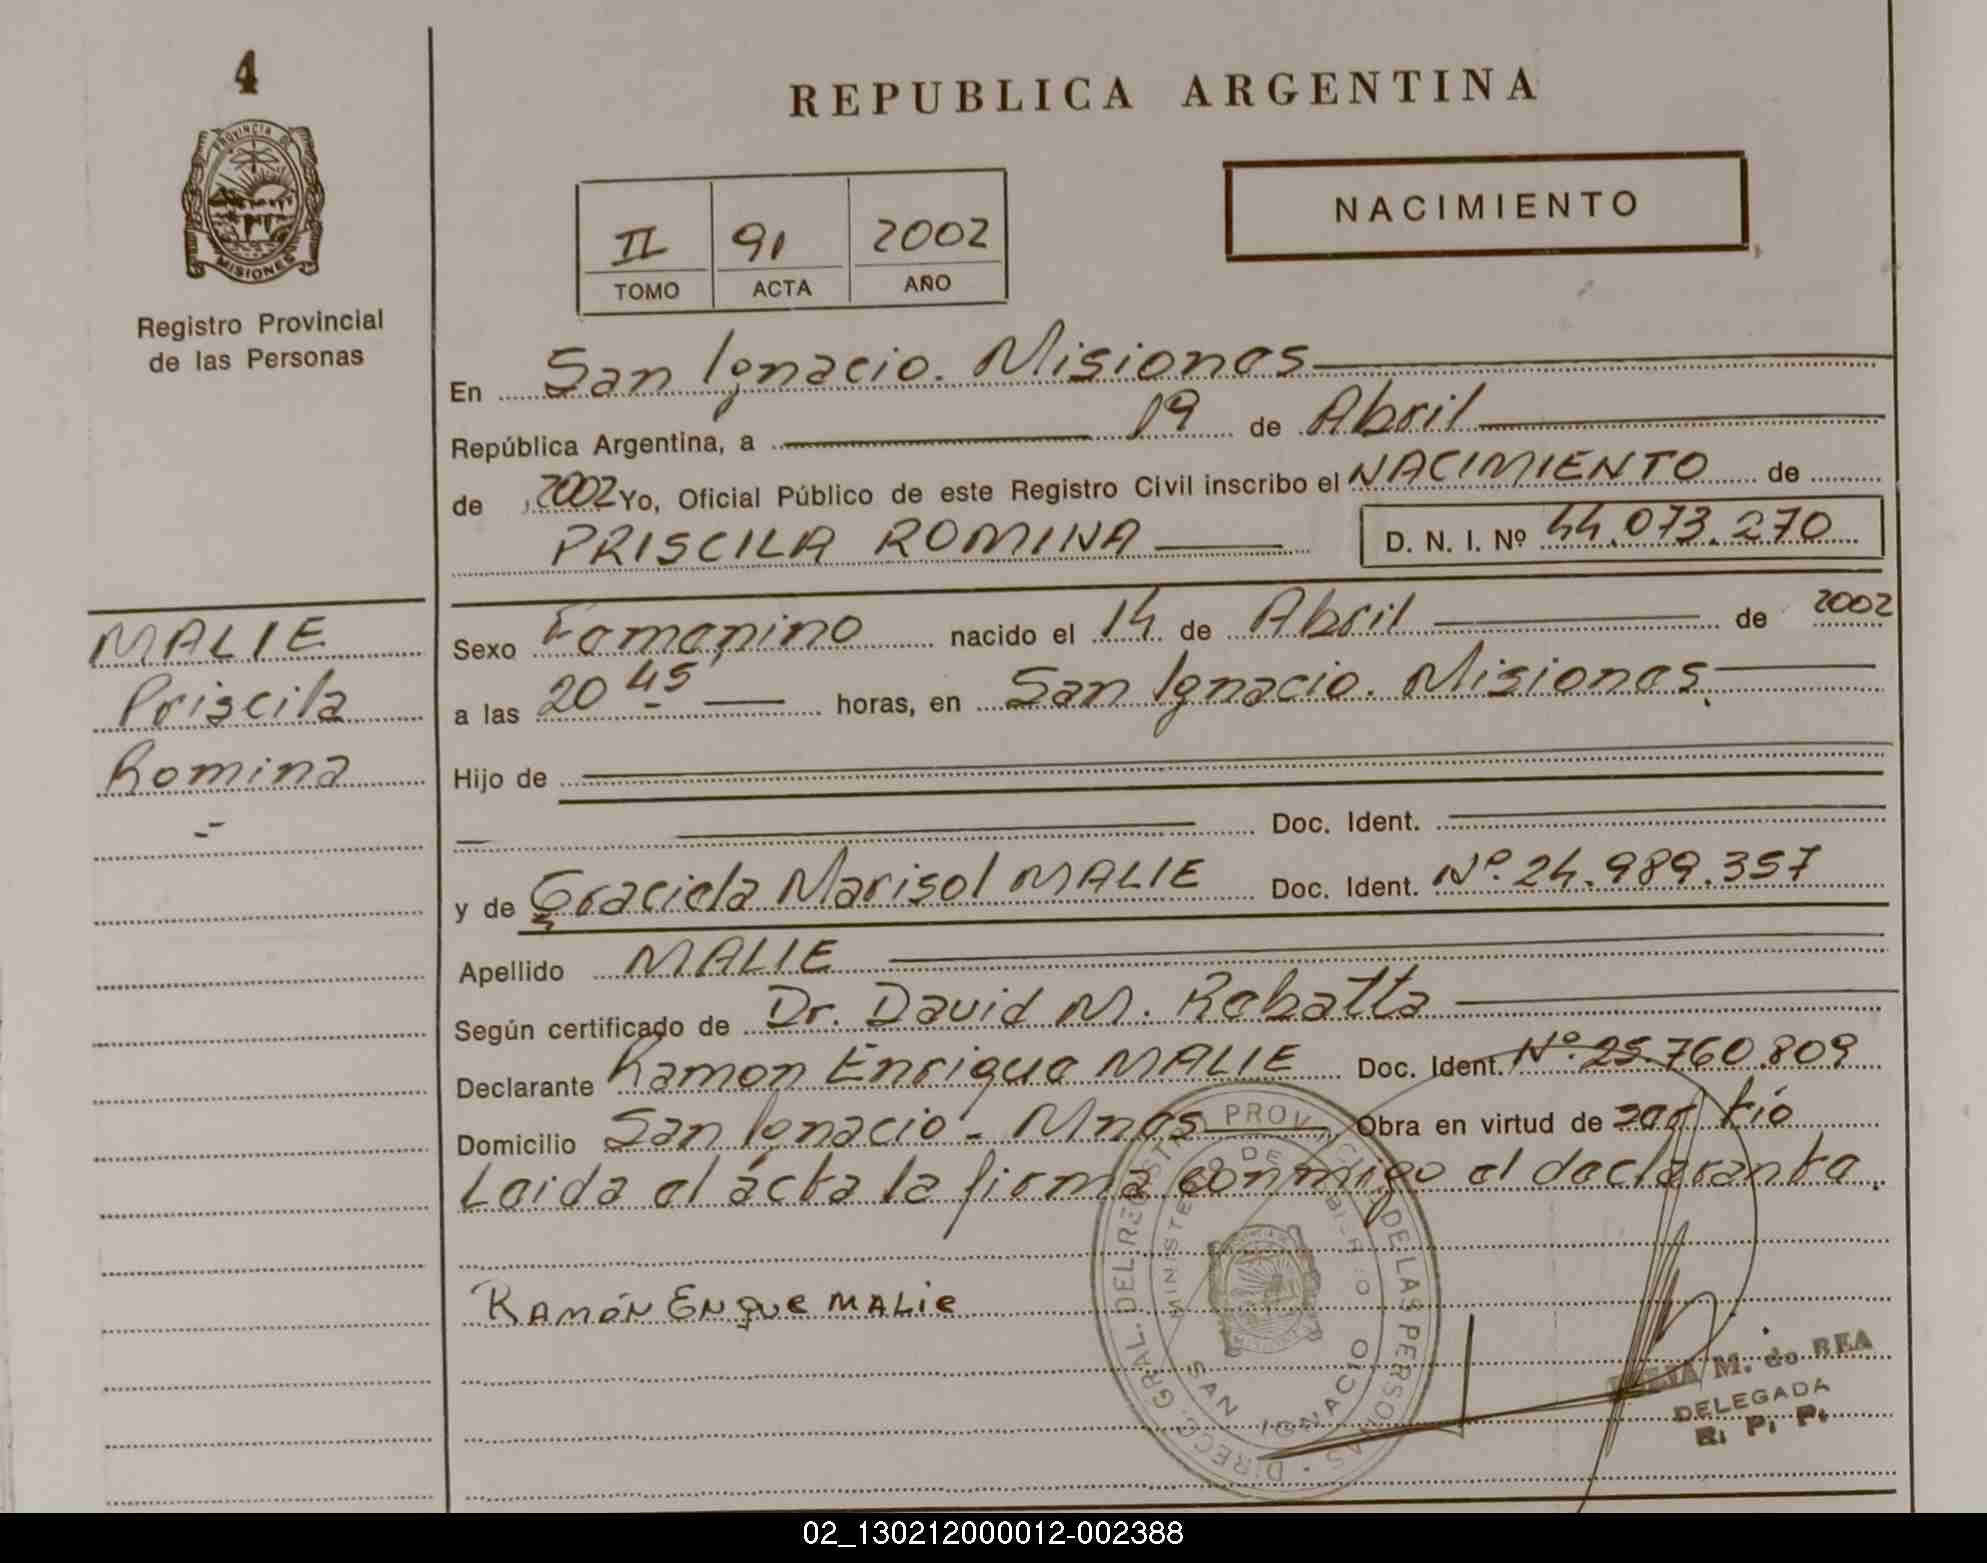 4
PROVINCIA DE
MISIONES
Registro Provincial
de las Personas
REPUBLICA ARGENTINA
II 91 2002
TOMO ACTA AÑO
NACIMIENTO
En San Ignacio. Misiones
República Argentina, a 19 de Abril
de 2002 Yo, Oficial Público de este Registro Civil inscribo el NACIMIENTO de
PRISCILA ROMINA D. N. I. Nº 44.073.270
MALIE
Priscila
Romina
Sexo Femenino nacido el 14 de Abril de 2002
a las 20 45 horas, en San Ignacio. Misiones.
Hijo de
Doc. Ident.
y de Graciela Marisol MALIE Doc. Ident. Nº. 24.989.357
Apellido MALIE
Según certificado de Dr. David M. Rebatta
Declarante Ramon Enrique MALIE Doc. Ident. Nº. 25.760.809
Domicilio San Ignacio - Mnes Obra en virtud de ser tío
Leida el ácta la firma conmigo el declarante.
RAMÓN ENQUE MALIE
DIRECC. GRAL. DEL REGISTRO PROVINCIAL DE LAS PERSONAS
MINISTERIO DE GOBIERNO
SAN IGNACIO
M. de REA
DELEGADA
R. P. P.
02_130212000012-002388